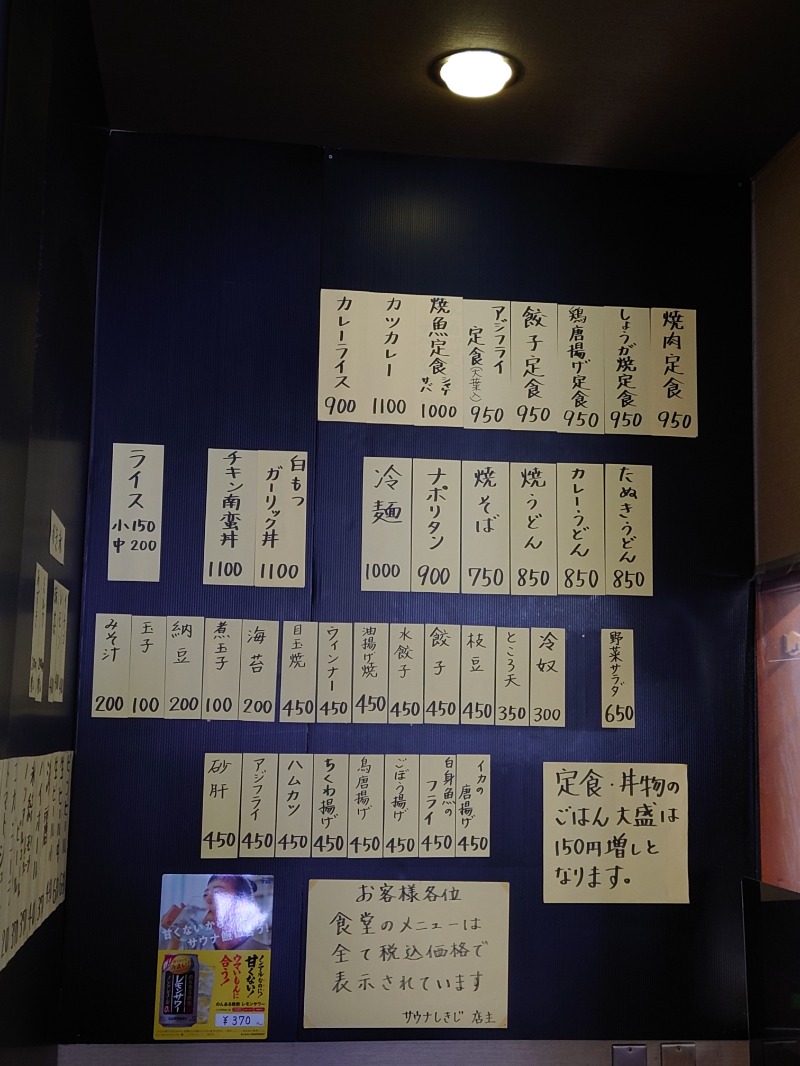 焼肉定食 950
しょうが焼定食 950
鶏唐揚げ定食 950
餃子定食 950
アジフライ
定食(大葉入) 950
焼魚定食 シャケ サバ 1000
カツカレー 1100
カレーライス 900
たぬきうどん 850
カレーうどん 850
焼うどん 850
焼そば 750
ナポリタン 900
冷麺 1000
白もつ
ガーリック丼 1100
チキン南蛮丼 1100
ライス
小150
中200
野菜サラダ 650
冷奴 300
ところ天 350
枝豆 450
餃子 450
水餃子 450
油揚げ焼 450
ウィンナー 450
目玉焼 450
海苔 200
煮玉子 100
納豆 200
玉子 100
みそ汁 200
イカの
唐揚げ 450
白身魚の
フライ 450
ごぼう揚げ 450
鳥唐揚げ 450
ちくわ揚げ 450
ハムカツ 450
アジフライ 450
砂肝 450
定食・丼物の
ごはん大盛は
150円増しと
なります。
お客様各位
食堂のメニューは
全て税込価格で
表示されています
サウナしきじ 店主
甘くないから
ノンアルなのに?
甘くない!
ウマいもんに
合う!
レモンサワー
のんある晩酌 レモンサワー
¥370